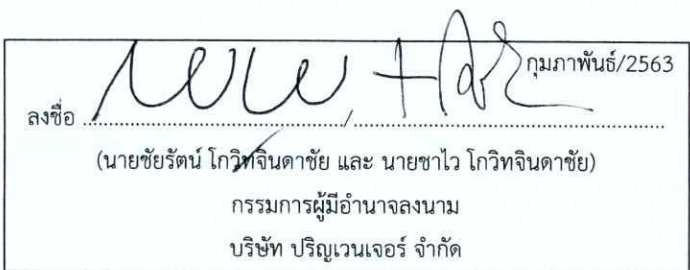 กุมภาพันธ์/2563
ลงชื่อ ............................................/............................................................
(นายชัยรัตน์ โกวิทจินดาชัย และ นายชาไว โกวิทจินดาชัย)
กรรมการผู้มีอำนาจลงนาม
บริษัท ปริญเวนเจอร์ จำกัด